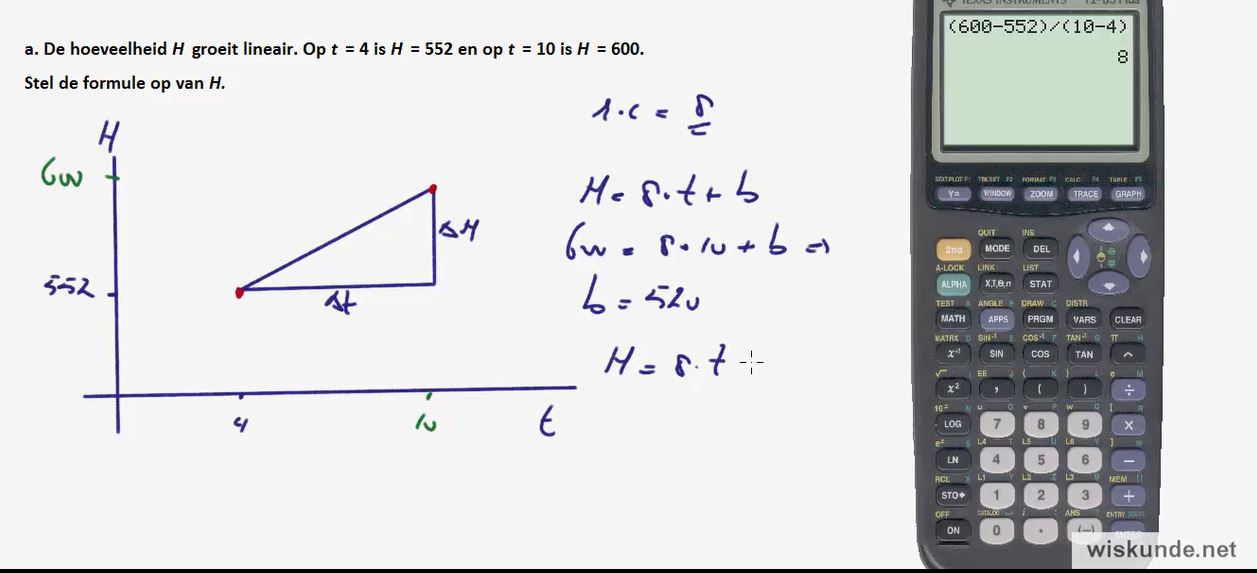 a. De hoeveelheid H groeit lineair. Op t = 4 is H = 552 en op t = 10 is H = 600.
Stel de formule op van H.
H
600
552
ΔH
Δt
4
10
t
r.c = 8
H = 8·t + b
600 = 8·10 + b ⇒
b = 520
H = 8·t
TEXAS INSTRUMENTS
(600-552)/(10-4)
8
STAT PLOT F1 TBLSET F2 FORMAT F3 CALC F4 TABLE F5
Y= WINDOW ZOOM TRACE GRAPH
QUIT INS
2nd MODE DEL
A-LOCK LINK LIST
ALPHA X,T,θ,n STAT
TEST A ANGLE B DRAW C DISTR
MATH APPS PRGM VARS CLEAR
MATRX D SIN⁻¹ E COS⁻¹ F TAN⁻¹ G π H
x⁻¹ SIN COS TAN ^
√ I EE J { K } L e M
x² , ( ) ÷
10ˣ N u O v P w Q [ R
LOG 7 8 9 ×
eˣ S L4 T L5 U L6 V ] W
LN 4 5 6 −
RCL X L1 Y L2 Z L3 θ MEM "
STO▸ 1 2 3 +
OFF CATALOG i : ANS ? ENTRY SOLVE
ON 0 . (−) ENTER
wiskunde.net